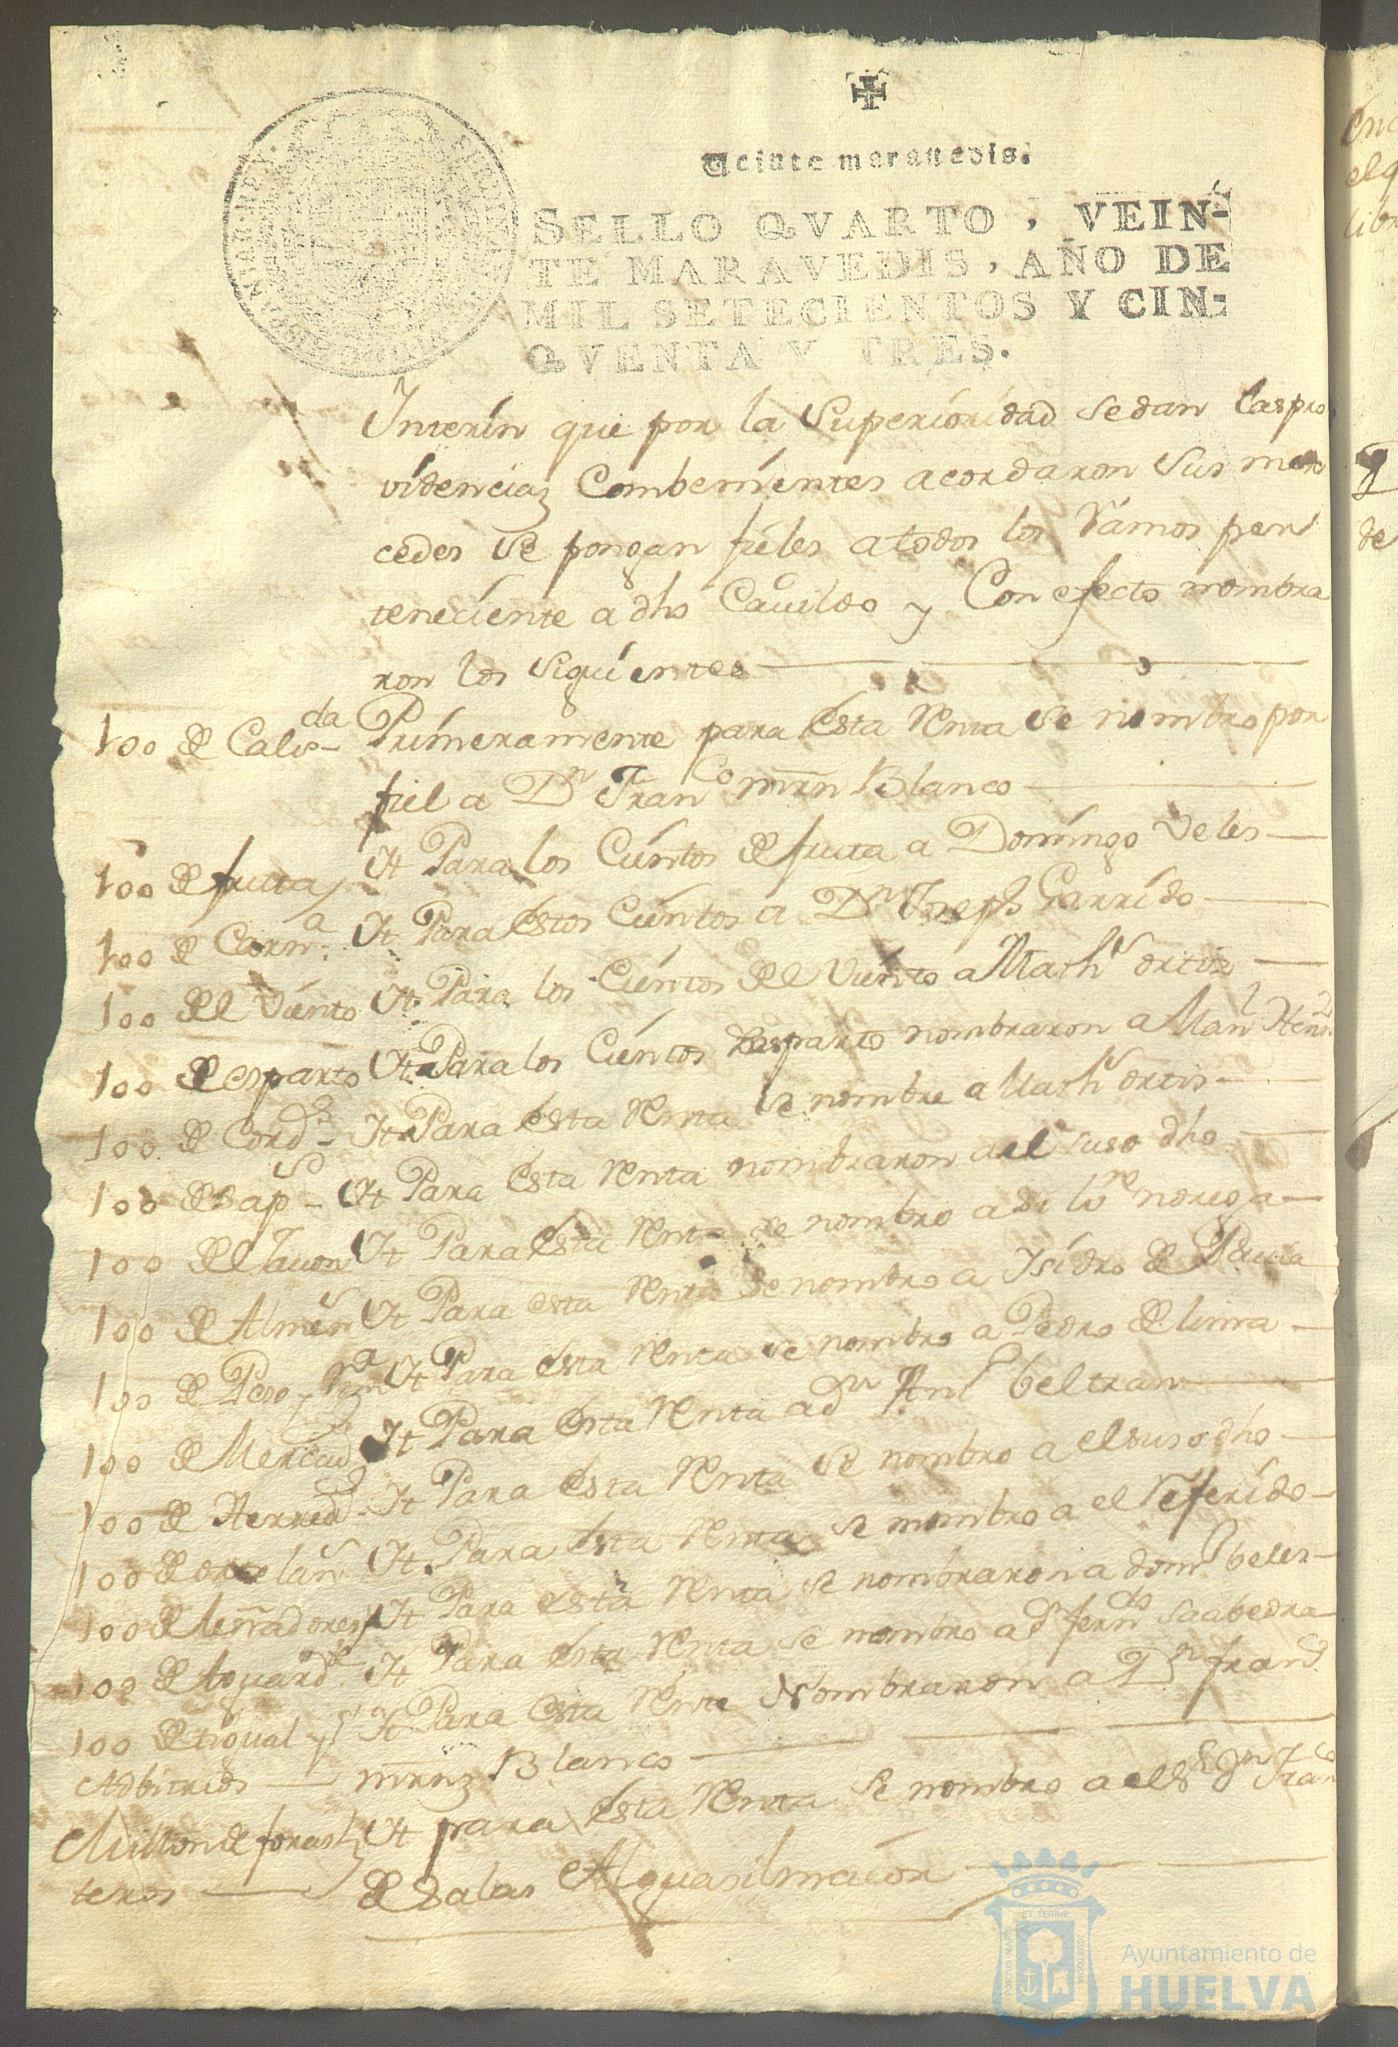 Veinte maravedis.
SELLO QVARTO, VEIN-
TE MARAVEDIS, AÑO DE
MIL SETECIENTOS Y CIN-
QVENTA Y TRES.
Ynterin que por la Superioridad se dan las pro
videncias Combenientes acordaron Sus mer
cedes se pongan fieles a todos los Ramos per
teneciente a dho Cavildo y Con efecto nombra
ron los siguientes
100 de Calis da Primeramente para esta Renta se nombro por
fiel a Dn Franco mrn Blanco
100 de fruta Yt Para los Cientos de fruta a Domingo Veles
100 de Carn.a Yt Para estos Cientos a Dn Joseph Garrido
100 del Viento Yt Para los Cientos del Viento a Mathl ortiz
100 de esparto Yt Para los Cientos desparto nombraron a Manl Hern
100 de Cord.s Yt Para esta Renta se nombre a Math ortis
100 de Sap.s Yt Para esta Renta nombraron a el suso dho
100 del Yt Para esta Renta se nombro a
100 de Almen Yt Para esta Renta se nombro a Ysidro de
100 de Peso y Yt Para esta Renta se nombro a Pedro de lima
100 de Mercad Yt Para esta Renta a dn Antº beltran
100 de Herred Yt Para esta Renta se nombro a el suso dho
100 de ortelan Yt Para esta Renta se nombro a el Referido
100 de leñadores Yt Para esta Renta se nombraron a domº beles
100 de Aguard.te Yt Para esta Renta se nombro a dn ferndo Saabedra
100 de tigual y Yt Para esta Renta Nombraron a Dn franco
Adbitrios mrnz Blanco
Millon de foras Yt para esta Renta se nombro a el Sr dn Franco
teros de Salas Alguasilmaior
Ayuntamiento de
HUELVA